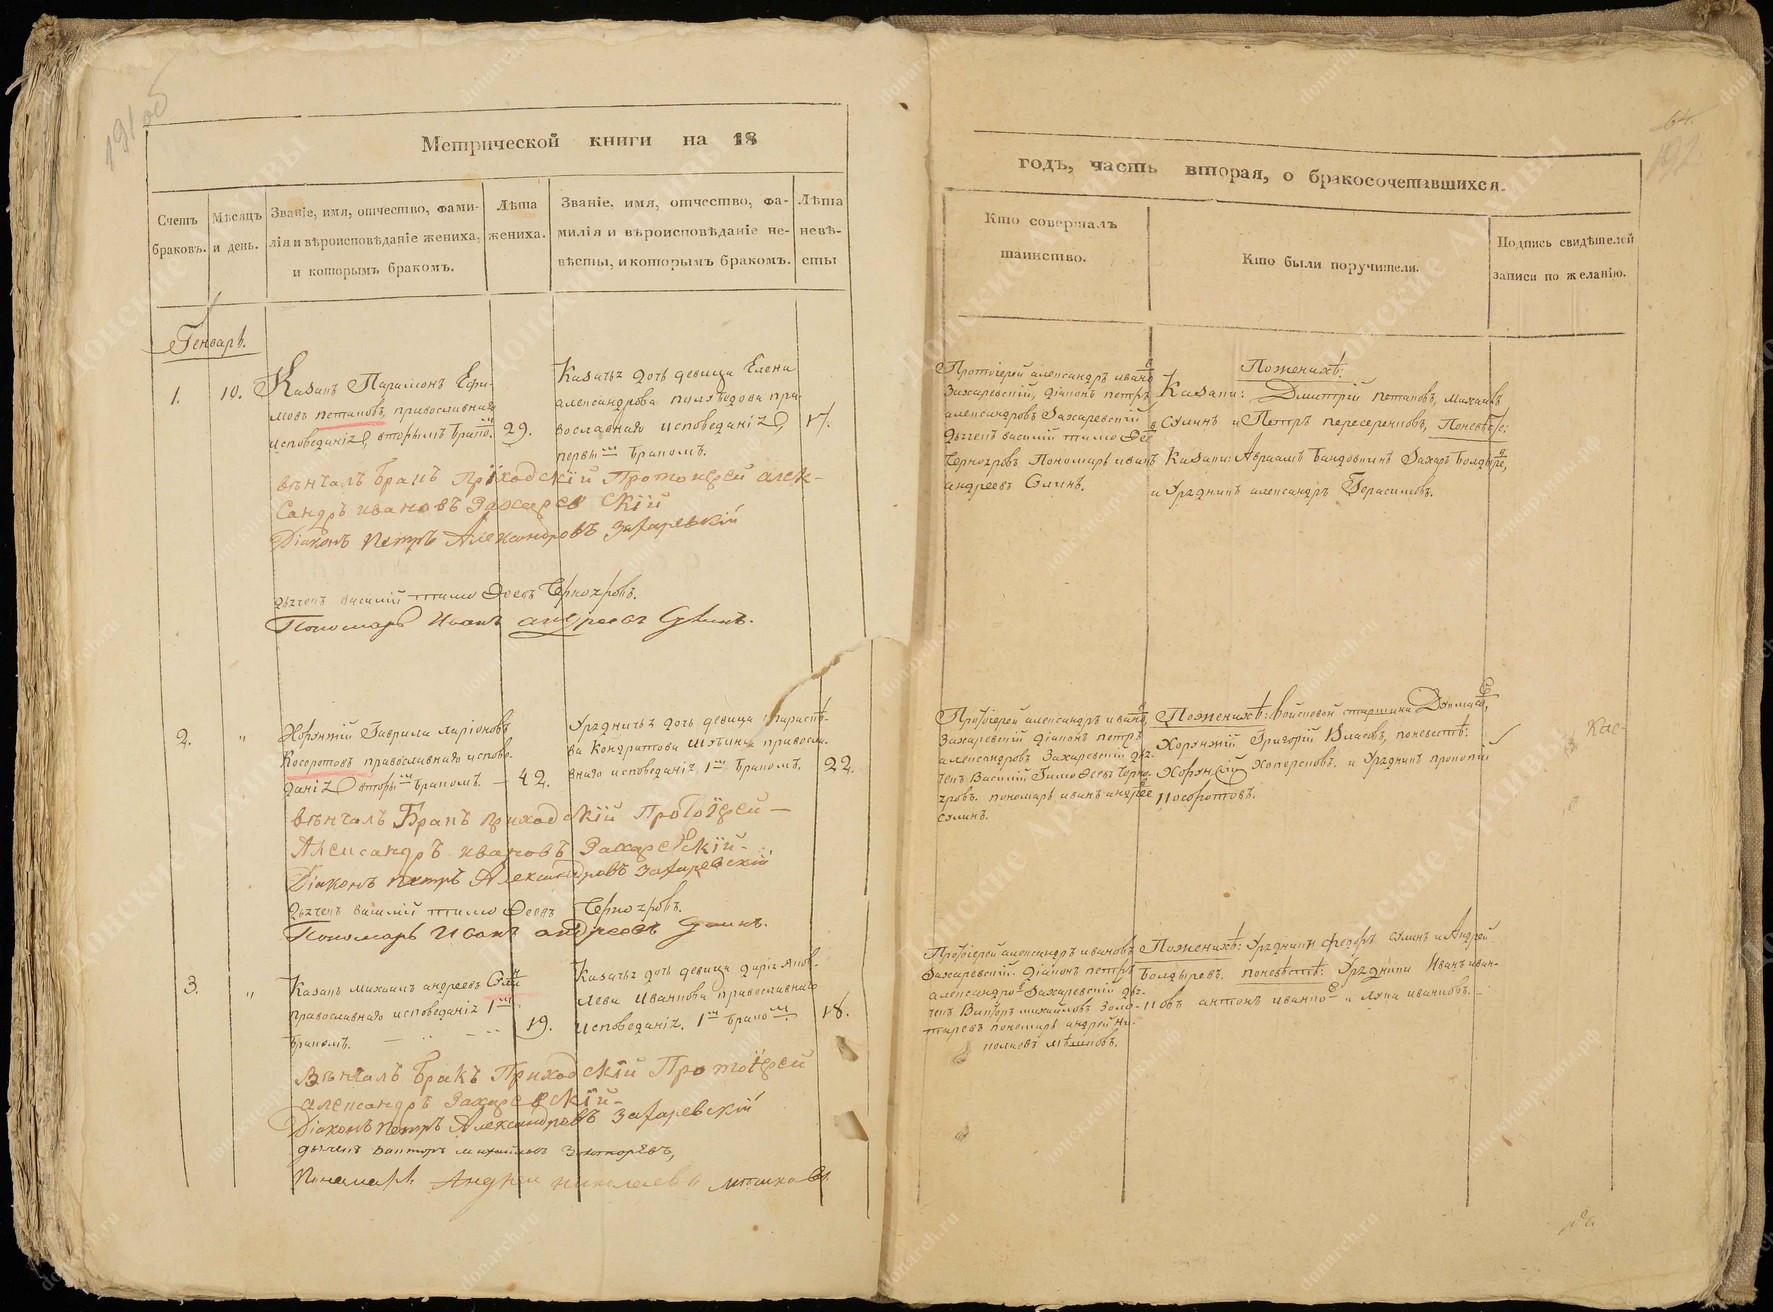 191 об
Метрической книги на 18
Счетъ браковъ.
Мѣсяцъ и день.
Званіе, имя, отчество, фами-
лія и вѣроисповѣданіе жениха,
и которымъ бракомъ.
Лѣта
жениха.
Званіе, имя, отчество, фа-
милія и вѣроисповѣданіе не-
вѣсты, и которымъ бракомъ.
Лѣта
невѣ-
сты
Генварь.
1.
10.
Казакъ Парамонъ Ефи-
мовъ Потаповъ, православнаго
исповеданія, вторымъ брако.
29.
Казачья дочь девица Елена
александрова пра-
вославнаго исповеданія,
первымъ бракомъ.
17.
вѣнчалъ бракъ приходскій Протоиерей алек-
сандръ ивановъ Захаревскій
Діаконъ Петръ Александровъ Захаревскій
дьячекъ василій тимофеевъ Чернояровъ.
Пономарь Иванъ андреевъ Сулинъ.
2.
"
Хорунжій Гаврила Ларіоновъ
Косоротовъ православнаго испове-
данія вторымъ бракомъ.
42.
Урядничья дочь девица Параскѣ-
ва Кондратова православ-
наго исповеданія, 1мъ бракомъ.
22.
вѣнчалъ Бракъ приходскій Протоіерей
Александръ ивановъ Захаревскій
Діаконъ Петръ Александровъ Захаревскій
дьячекъ василій тимофеевъ Чернояровъ.
Пономарь Иванъ андреевъ Сулинъ.
3.
"
Казакъ михаилъ андреевъ Сулинъ
православнаго исповеданія 1мъ
бракомъ.
19.
Казачья дочь девица дарія Яков-
лева Иванкова православнаго
исповеданія. 1мъ бракомъ
18.
Вѣнчалъ бракъ Приходскій Протоіерей
александръ Захаревскій
Діаконъ Петръ Александровъ Захаревскій
дьячекъ викторъ михайловъ Золотаревъ,
Пономарь Андрей николаевъ мѣшковъ
64.
192
годъ, часть вторая, о бракосочетавшихся.
Кто совершалъ
таинство.
Кто были поручители.
Подпись свидѣтелей
записи по желанію.
Протоіерей александръ ивановъ
Захаревскій, діаконъ петръ
александровъ Захаревскій
дьячекъ василій тимофеевъ
Чернояровъ Пономарь иванъ
андреевъ Сулинъ.
По женихѣ:
Казаки: Дмитрій потаповъ, михаилъ
Сулинъ и Петръ По невѣстѣ:
Казаки: Авраамъ Захаръ Болдыревъ,
и Урядникъ александръ Герасимовъ.
Протоіерей александръ ивановъ
Захаревскій діаконъ петръ
александровъ Захаревскій дья-
чекъ Василій Тимофеевъ Черно-
яровъ. пономарь иванъ андреевъ
Сулинъ.
По женихѣ: войсковой старшина
Хорунжій Григорій Власовъ, по невестѣ:
Хорунжій Хоперсковъ. и Урядникъ прокопій
Косоротовъ.
Протоіерей александръ ивановъ
Захаревскій. діаконъ петръ
александровъ Захаревскій дья-
чекъ Викторъ михайловъ Золо-
таревъ пономарь андрей ни-
колаевъ мѣшковъ.
По женихѣ: Урядники федоръ Сулинъ и Андрей
Болдыревъ. по невѣстѣ: Урядники Иванъ иван-
ковъ антонъ иванковъ и лука иванковъ.